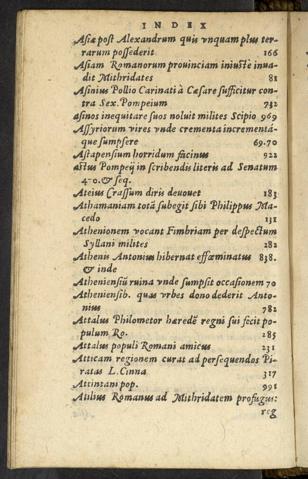 INDEX
Asiæ post Alexandrum quis vnquam plus ter-
rarum possederit 166
Asiam Romanorum prouinciam iniuste inua-
dit Mithridates 81
Asinius Pollio Carinati à Cæsare sufficitur con-
tra Sex. Pompeium 732
asinos inequitare suos noluit milites Scipio 969
Assyriorum vires vnde crementa incrementá-
que sumpsere 69.70
Astapensium horridum facinus 922
astus Pompeij in scribendis literis ad Senatum
40.& seq.
Ateius Crassum diris deuouet 183
Athamaniam totã subegit sibi Philippus Ma-
cedo 131
Athenionem vocant Fimbriam per despectum
Syllani milites 282
Athenis Antonius hibernat effœminatus 838.
& inde
Atheniensiũ ruina vnde sumpsit occasionem 70
Atheniensib. quas vrbes dono dederit Anto-
nius 782
Attalus Philometor hæredẽ regni sui fecit po-
pulum Ro. 285
Attalus populi Romani amicus 231
Atticam regionem curat ad persequendos Pi-
ratas L.Cinna 317
Attintani pop. 991
Atilius Romanus ad Mithridatem profugus:
reg